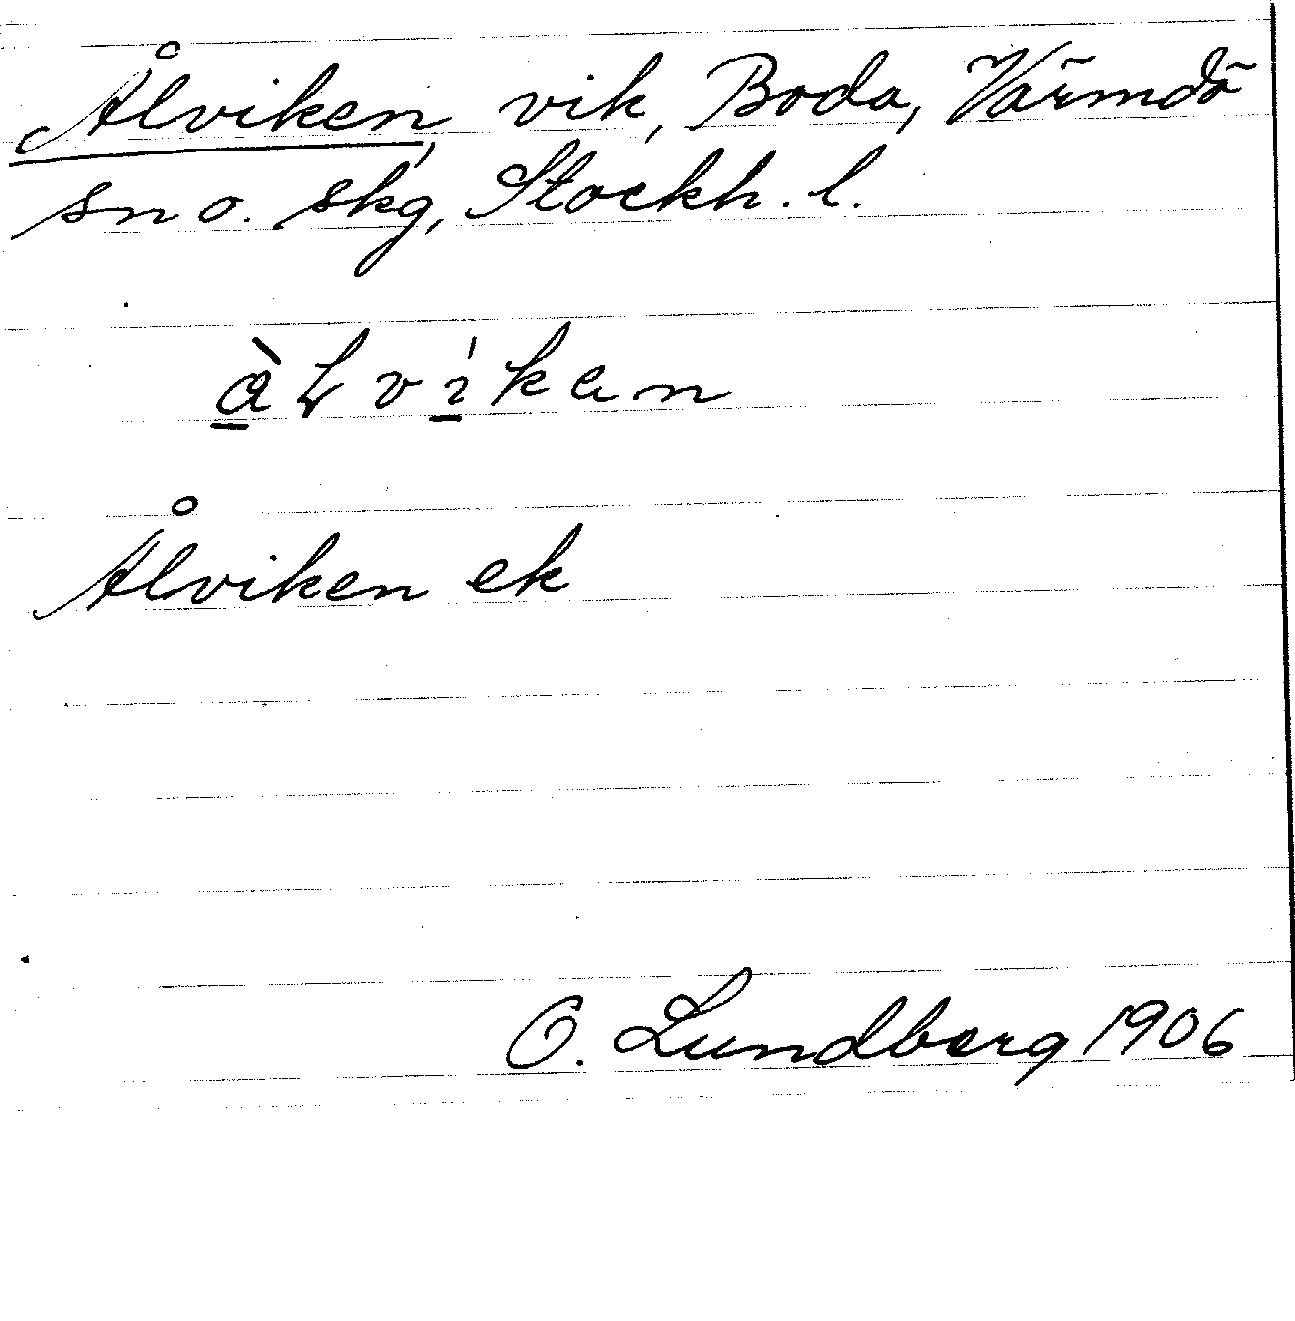 Ålviken, vik, Boda, Värmdö
sn o. skg, Stockh. l.
àlvíken
Ålviken ek
O. Lundberg 1906